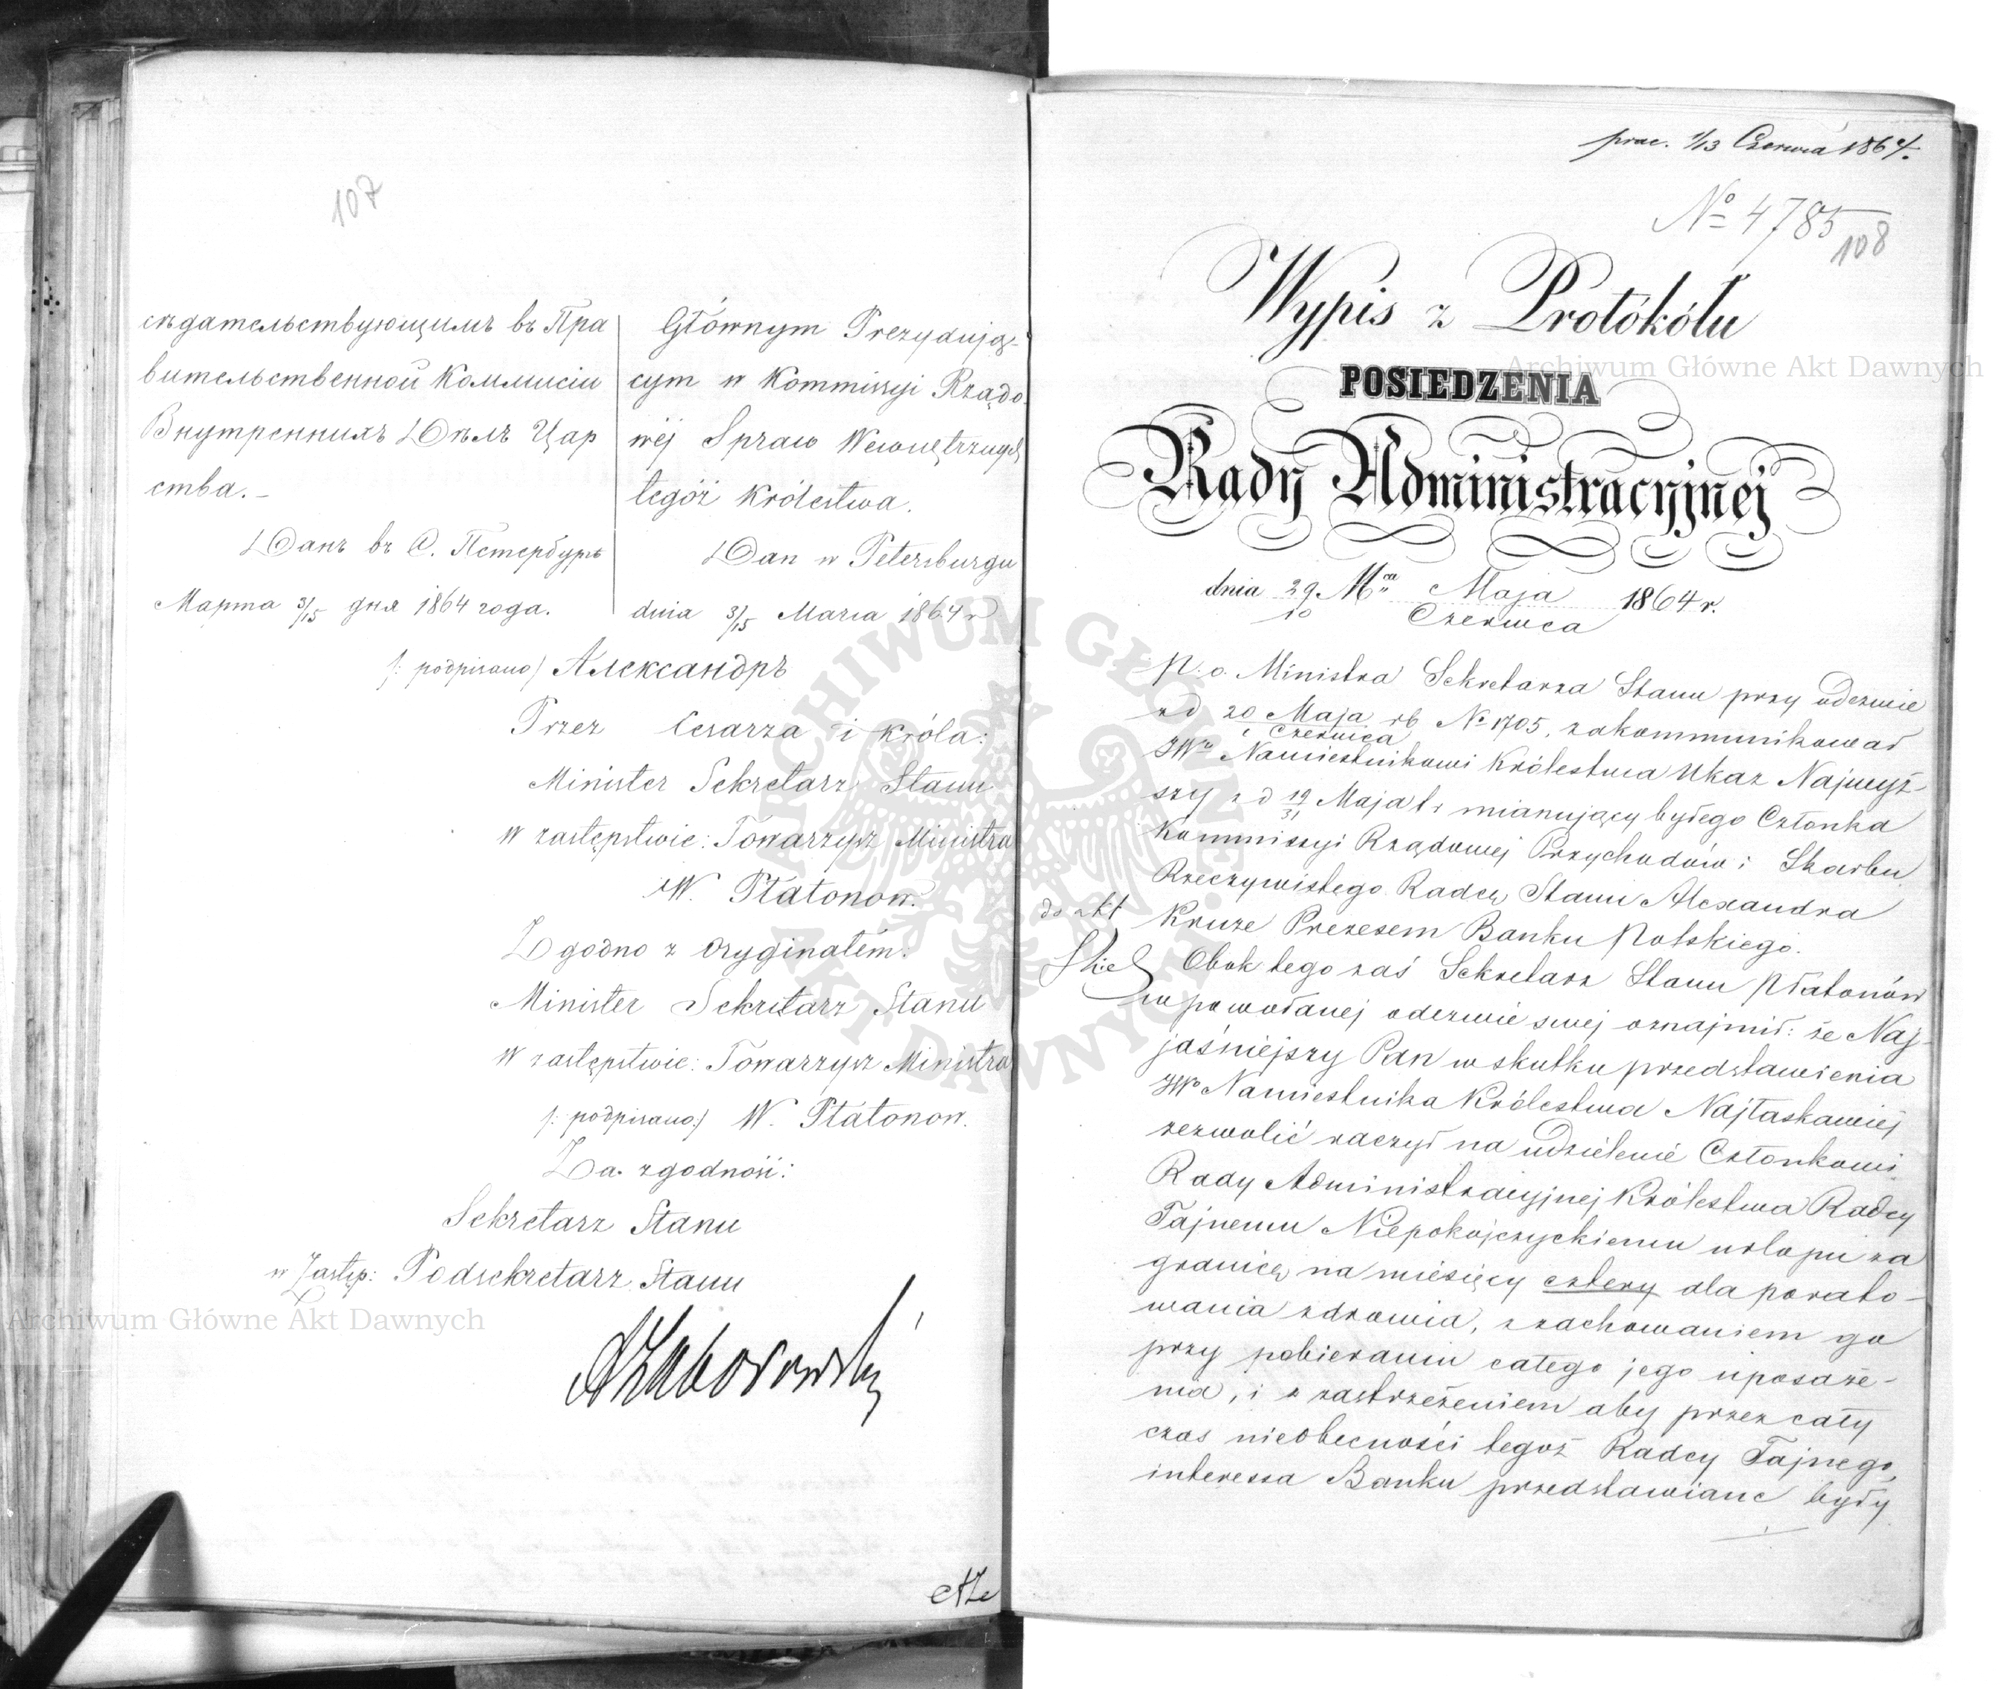 107
сѣдательствующимъ въ Пра
вительственной Коммисiи
Внутреннихъ Дѣлъ Цар
ства.
Данъ въ С. Петербургѣ
Марта 3/15 дня 1864 года.
Głównym Prezydują-
cym w Kommissyi Rządo
wéj Spraw Wewnętrznych
tegóż Królestwa.
Dan w Petersburgu
dnia 3/15 Marca 1864 r
/: podpisano/ Александръ
Przez Cesarza i Króla:
Minister Sekretarz Stanu
w zastępstwie: Towarzysz Ministra
W. Płatonow.
Zgodno z Oryginałem:
Minister Sekretarz Stanu
w zastępstwie: Towarzysz Ministra
/: podpisano:/ W. Płatonow.
Za zgodność:
Sekretarz Stanu
w Zastęp: Podsekretarz Stanu
AZaborowski
AZa
prac. 1/13 Czerwca 1864.
№ 4785
108
Wypis z Protókółu
POSIEDZENIA
Rady Administracyjnej
dnia 29/10 Mca Maja/Czerwca 1864 r.
P. o. Ministra Sekretarza Stanu przy odezwie
z d 20 Maja/1 Czerwca rb № 1705, zakommunikował
JWu Namiestnikowi Królestwa Ukaz Najwyż-
szy z d 19/31 Maja t r mianujący byłego Członka
Kommissyi Rządowej Przychodów i Skarbu
Rzeczywistego Radcę Stanu Alexandra
Kruze Prezesem Banku Polskiego.
do akt
Obok tego zaś Sekretarz Stanu Płatonów
w powołanej odezwie swej oznajmił: że Naj-
jaśniejszy Pan w skutku przedstawienia
JWo Namiestnika Królestwa Najłaskawiej
zezwolić raczył na udzielenie Członkowi
Rady Administracyjnej Królestwa Radcy
Tajnemu Niepokojczyckiemu urlopu za
granicę na miesięcy cztery dla porato-
wania zdrowia, z zachowaniem go
przy pobieraniu całego jego uposaże-
nia, i z zastrzeżeniem aby przez cały
czas nieobecności tegoż Radcy Tajnego,
interessa Banku przedstawiane były
Archiwum Główne Akt Dawnych
Archiwum Główne Akt Dawnych
ARCHIWUM GŁÓWNE AKT DAWNYCH